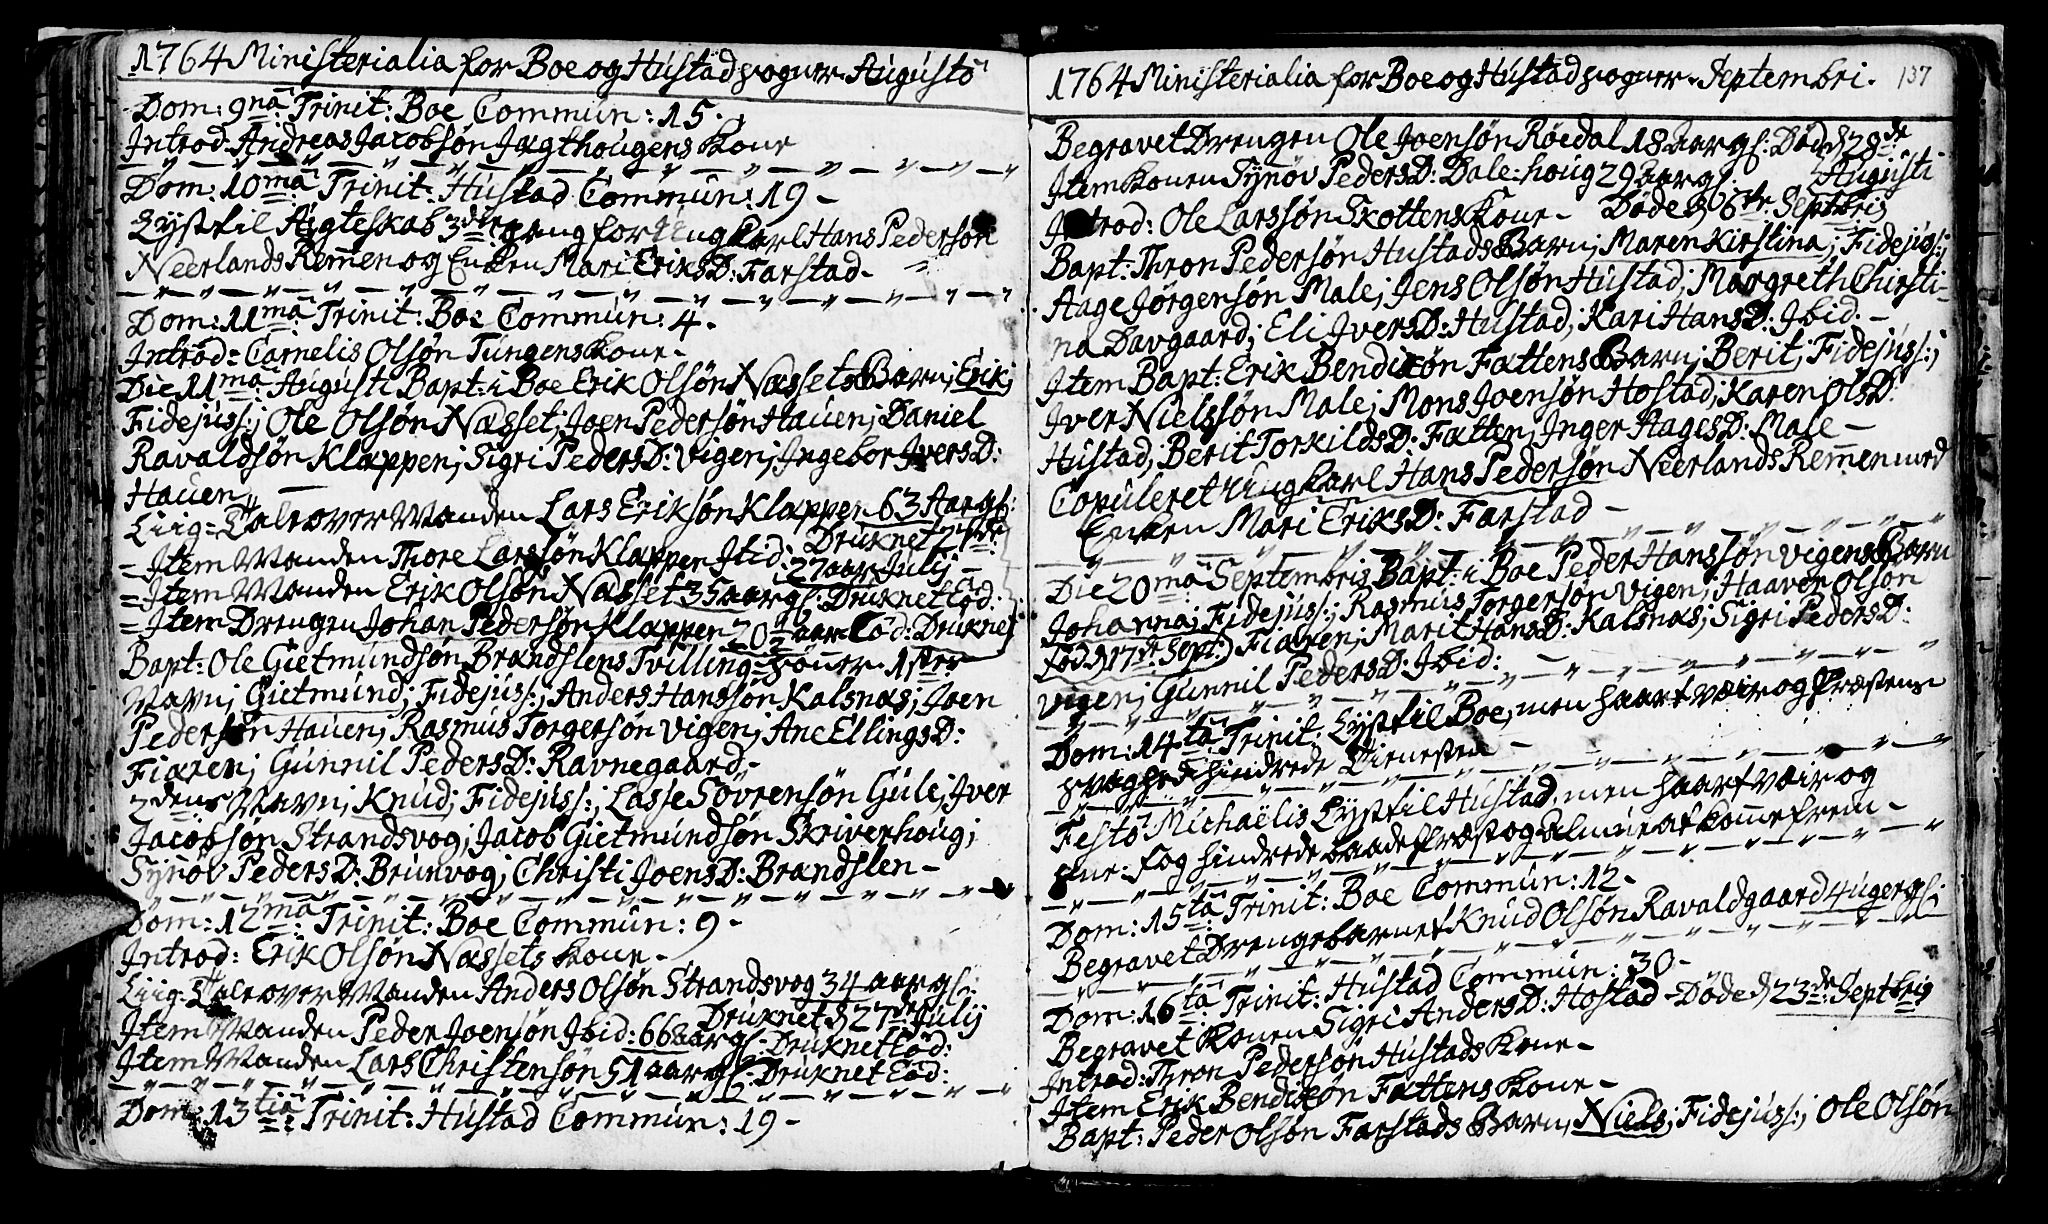 1764 Ministerialia for Boe og Hustad sogner. Augusto
Dom: 9na Trinit: Boe Commun: 15.
Introd: Andreas Jacobsøn Jagthougens Kone
Dom: 10ma Trinit: Hustad Commun: 19 -
Lyst til Ægteskab 3die gang for Ung Karl Hans Pedersøn
Neerlands Remen og Enken Mari EriksD: Farstad -
Dom: 11ma Trinit: Boe Commun: 4.
Introd: Carnelis Olsøn Tungens Kone -
Die 11ma Augusti Bapt: i Boe Erik Olsøn Næssets Barn; Erik;
Fidejuss:; Ole Olsøn Næsset; Joen Pedersøn Hauen; Daniel
Ravaldsøn Klappen; Sigri PedersD: Vigen; Ingebor IversD:
Hauen
Liig-Tale over Manden Lars Eriksøn Klappen 63 Aar gl:
Druknet 27de
- Item Manden Thore Larssøn Klappen Ibid: 27 aar Julij -
= Item Manden Erik Olsøn Næsset 35 aar gl: Druknet Eod:
= Item Drengen Johan Pedersøn Klappen 20½ aar Eod: Druknet
Bapt: Ole Gietmundsøn Brandslens Tvilling-sønner. 1ster
Navn; Gietmund; Fidejuss:; Anders Hanssøn Kalsnæs; Joen
Pedersøn Hauen; Rasmus Torgersøn Vigen; Ane EllingsD:
Fiaren; Gunnil PedersD: Ravnegaard -
2dens Navn; Knud; Fidejuss:; Lasse Søvrensøn Gule; Iver
Jacobsøn Strandsvog; Jacob Gietmundsøn Skriverhoug;
Synøv PedersD: Brunvog; Christi JoensD: Brandslen -
Dom: 12ma Trinit: Boe Commun: 9 -
Introd: Erik Olsøn Næssets Kone -
Liig-Tale over Manden Anders Olsøn Strandsvog 34 aar gl:
Druknet d 27de Julij
Item Manden Peder Joensøn Ibid: 66 aar gl: Druknet Eod:
Item Manden Lars Christensøn 51 aar gl: Druknet Eod:
Dom: 13tia Trinit: Hustad Commun: 19 -
1764 Ministerialia for Boe og Hustad sogner. Septembri. 137
Begravet Drengen Ole Joensøn Røedal 18 aar gl: Død d 28de
Item Konen Synøv PedersD: Dale-houg 29 aar gl: Augusti
Introd: Ole Larssøn Skottens Kone - Døde d 6te Septbris
Bapt: Thron Pedersøn Hustads Barn; Maren Kirstina; Fidejuss:;
Aage Jørgensøn Male; Jens Olsøn Hustad; Margreth Chirsti-
na Davgaard; Eli IversD: Hustad; Kari HansD: Ibid. -
Item Bapt: Erik Bendixøn Fattens Barn; Berit; Fidejuss:;
Iver Nielssøn Male; Mons Joensøn Hostad; Karen OlsD:
Hustad; Berit TorkildsD: Fatten; Inger AagesD: Male -
Copuleret Ung Karl Hans Pedersøn Neerlands Remen med
Enken Mari EriksD: Farstad -
Die 20ma Septembris Bapt: i Boe Peder Hanssøn Vigens Barn
Johanna; Fidejuss:; Rasmus Torgersøn Vigen; Haaven Olsøn
fød d 17de Sept:) Fiaren; Marit HansD: Kalsnæs; Sigri PedersD:
Vigen; Gunnil PedersD: Ibid:
Dom: 14ta Trinit: Lyst til Boe, men haart væir og Præstens
svaghed hindrede Tienesten -
Festo Michaëlis Lyst til Hustad, men haart væir og
snee-fog hindrede baade Præst og Almue at komme frem -
Dom: 15ta Trinit: Boe Commun: 12 -
Begravet Drengebarnet Knud Olsøn Ravaldgaard 4 uger gl:
Dom: 16ta Trinit: Hustad Commun: 30 -
Begravet Konen Sigri AndersD: Hostad - Døde d 23de Septbris
Introd: Thron Pedersøn Hustads Kone -
Item Erik Bendixøn Fattens Kone -
Bapt: Peder Olsøn Farstads Barn; Niels; Fidejuss:; Ole Olsøn